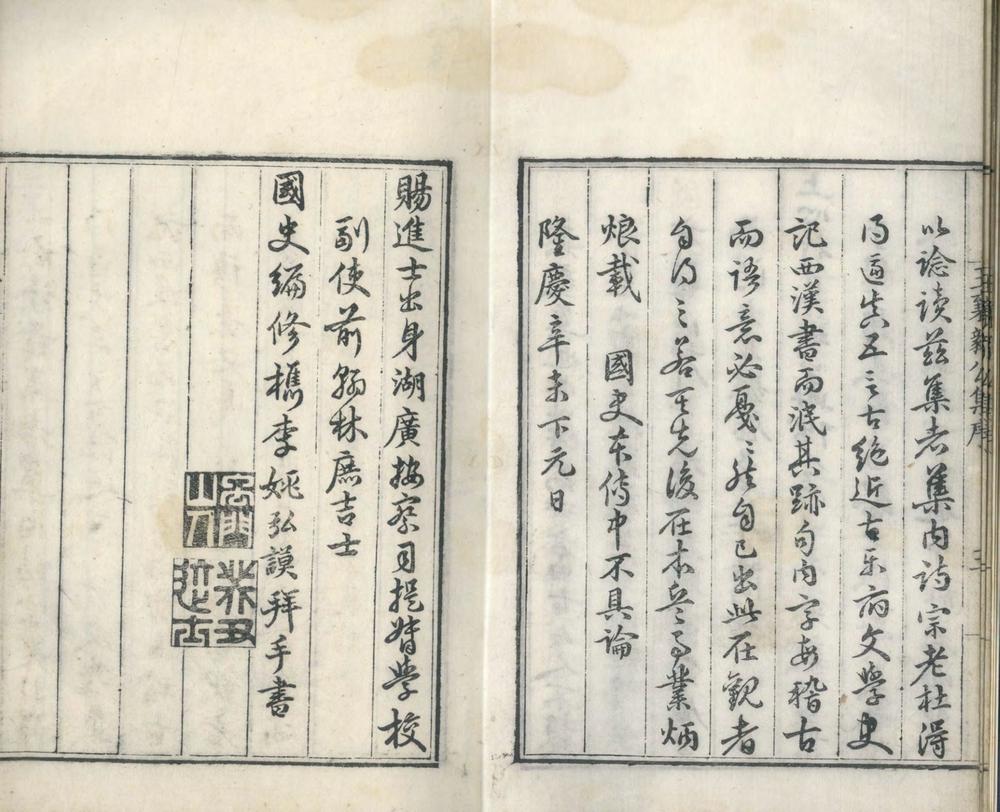 以諗读茲集者集内詩宗老杜得
得逼真五言古絶近古乐府文學史
記西漢書而泯其跡句内字每稽古
而语意必戛々然自己出此在觀者
自得之若其先後在本兵事業炳
烺載 國史本傳中不具論
隆慶辛未下元日
賜進士出身湖廣按察司提督學校
副使前翰林庶吉士
國史編修檇李姚弘謨拜手書
癸丑進士
王襄新公集序
三